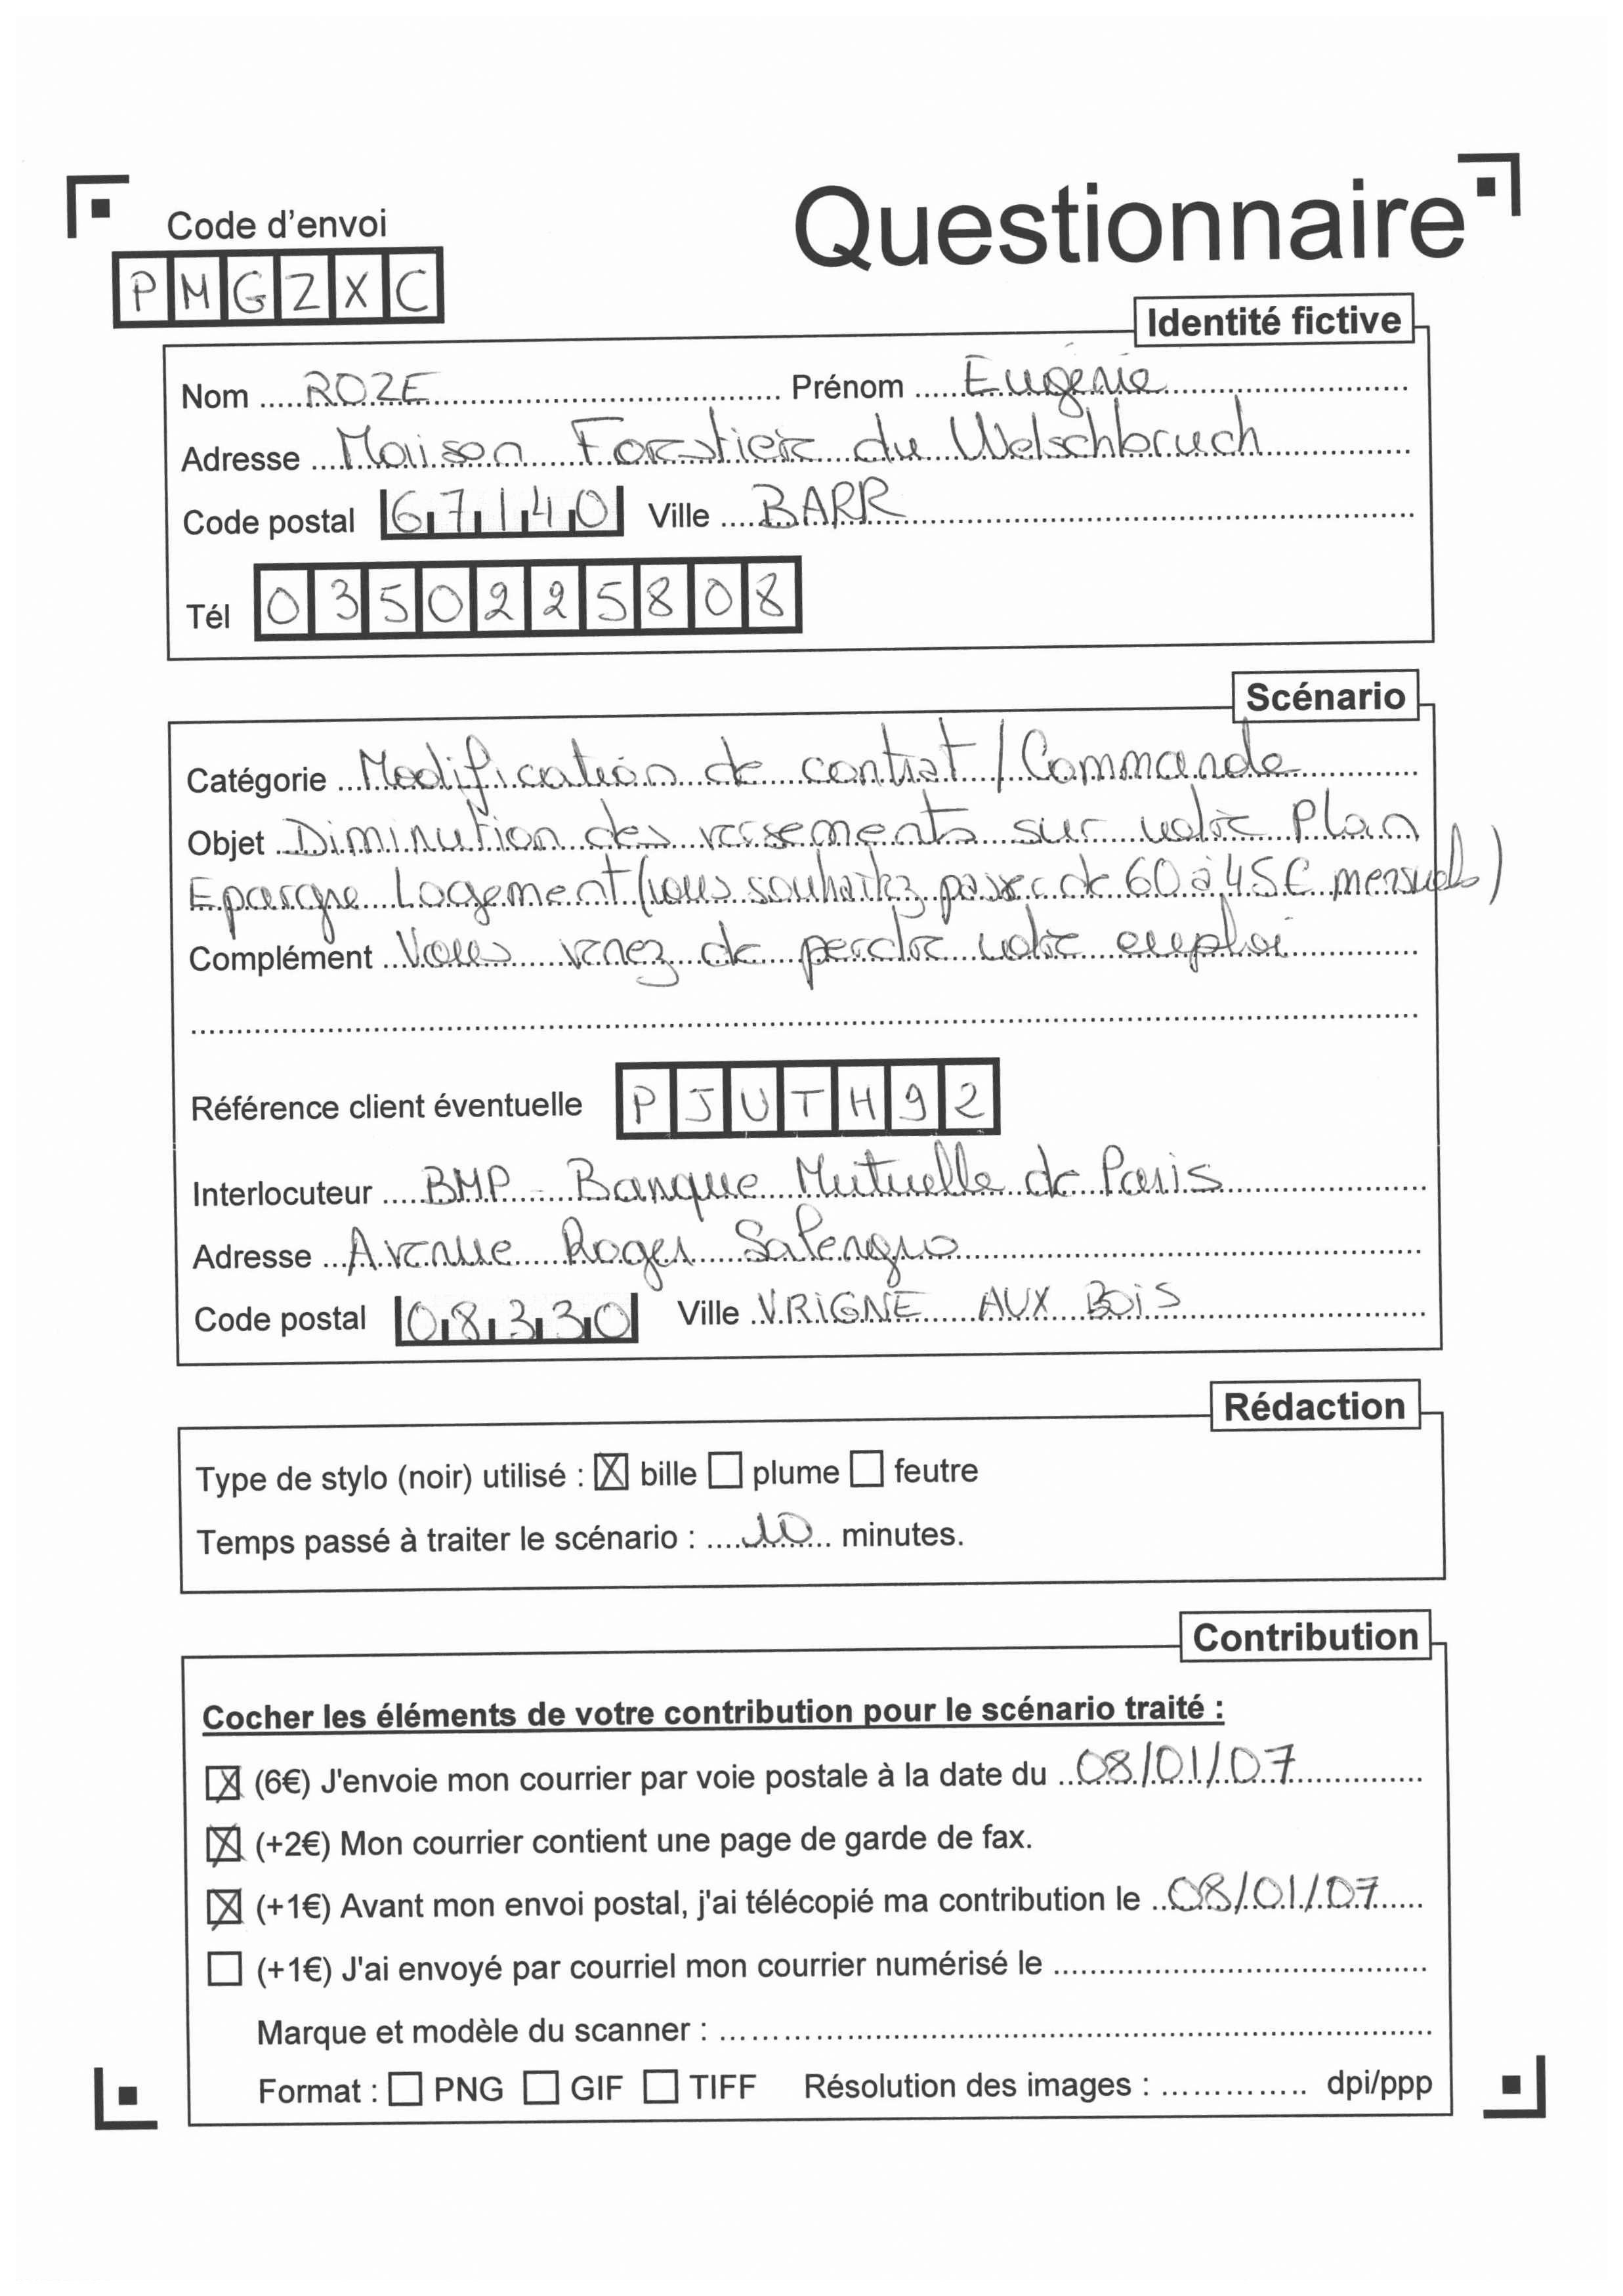 Code d'envoi
Questionnaire
PMGZXC
Identité fictive
Nom ROZE Prénom Eugénie
Adresse Maison Forstier du Welschbruch
Code postal 67140 Ville BARR
Tél 0350225808
Scénario
Catégorie Modification de contrat / Commande
Objet Diminution des versements sur votre Plan
Epargne Logement (vous souhaitez passer de 60 à 45€ mensuels)
Complément Vous venez de perdre votre emploi
Référence client éventuelle PJUTH92
Interlocuteur BMP - Banque Mutuelle de Paris
Adresse Avenue Roger Salengro
Code postal 08330 Ville VRIGNE AUX BOIS
Rédaction
Type de stylo (noir) utilisé : ☒ bille ☐ plume ☐ feutre
Temps passé à traiter le scénario : 10 minutes.
Contribution
Cocher les éléments de votre contribution pour le scénario traité :
☒ (6€) J'envoie mon courrier par voie postale à la date du 08/01/07
☒ (+2€) Mon courrier contient une page de garde de fax.
☒ (+1€) Avant mon envoi postal, j'ai télécopié ma contribution le 08/01/07
☐ (+1€) J'ai envoyé par courriel mon courrier numérisé le
Marque et modèle du scanner :
Format : ☐ PNG ☐ GIF ☐ TIFF Résolution des images : dpi/ppp